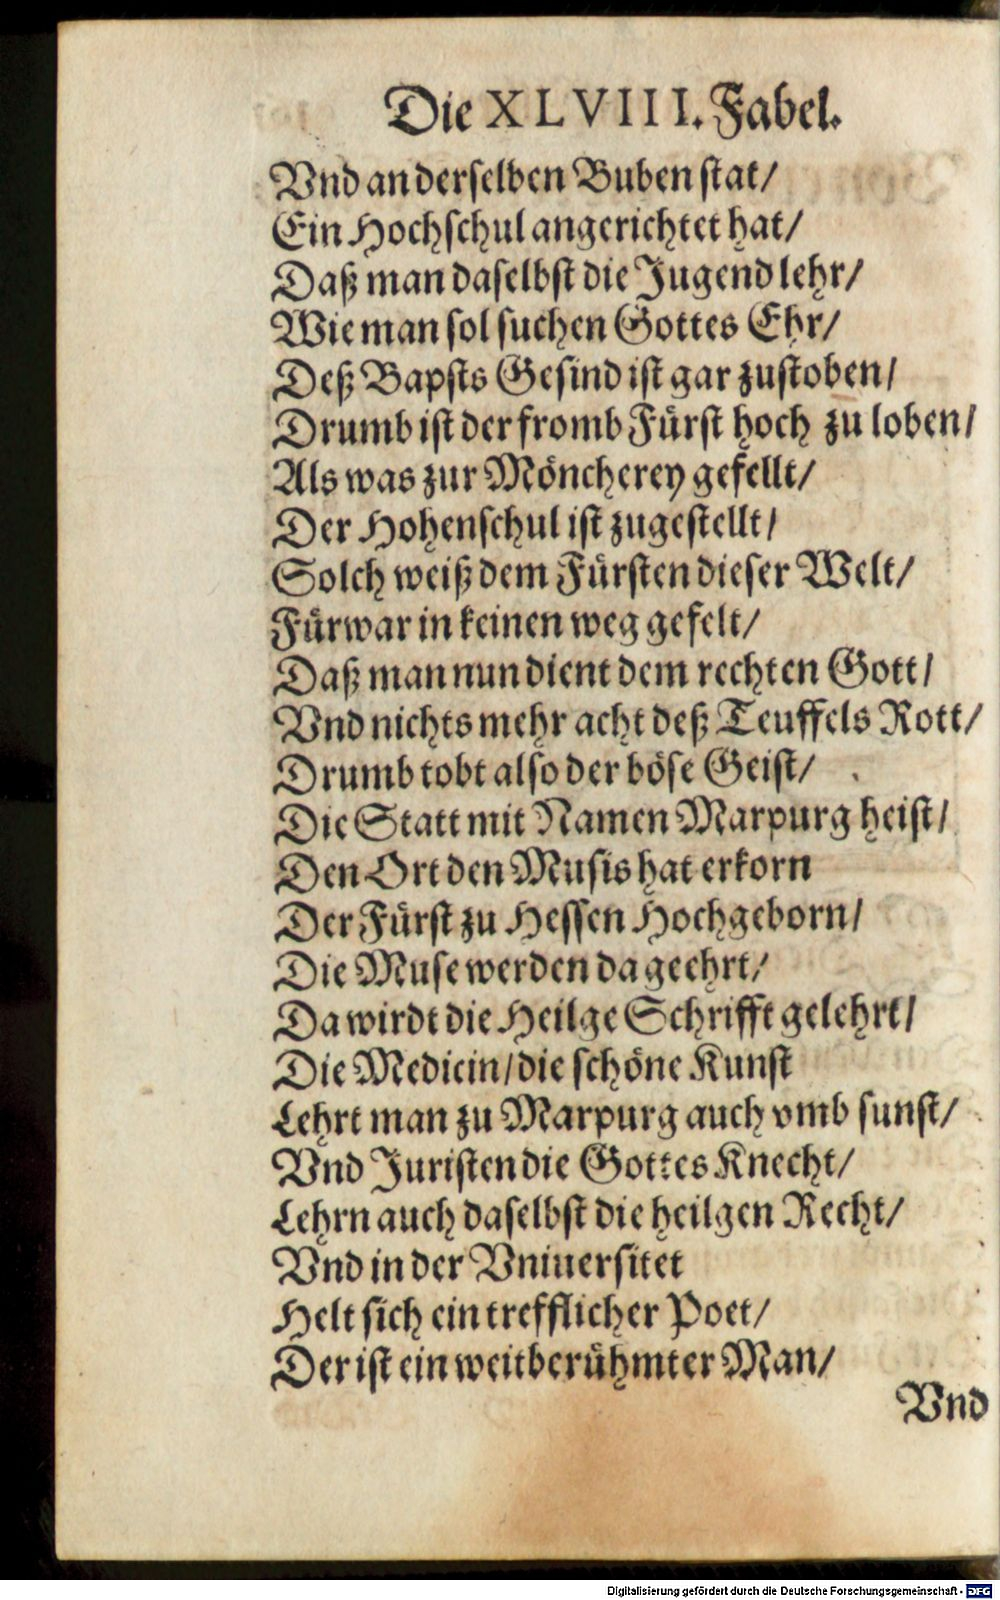 Die XLVIII. Fabel.
Vnd an derselben Buben stat/
Ein Hochschul angerichtet hat/
Daß man daselbst die Jugend lehr/
Wie man sol suchen Gottes Ehr/
Deß Bapsts Gesind ist gar zustoben/
Drumb ist der fromb Fürst hoch zu loben/
Als was zur Möncherey gefellt/
Der Hohenschul ist zugestellt/
Solch weiß dem Fürsten dieser Welt/
Fürwar in keinen weg gefelt/
Daß man nun dient dem rechten Gott/
Vnd nichts mehr acht deß Teuffels Rott/
Drumb tobt also der böse Geist/
Die Statt mit Namen Marpurg heist/
Den Ort den Musis hat erkorn
Der Fürst zu Hessen Hochgeborn/
Die Muse werden da geehrt/
Da wirdt die Heilge Schrifft gelehrt/
Die Medicin/die schöne Kunst
Lehrt man zu Marpurg auch vmb sunst/
Vnd Juristen die Gottes Knecht/
Lehrn auch daselbst die heilgen Recht/
Vnd in der Vniuersitet
Helt sich ein trefflicher Poet/
Der ist ein weitberühmter Man/
Vnd
Digitalisierung gefördert durch die Deutsche Forschungsgemeinschaft - DFG